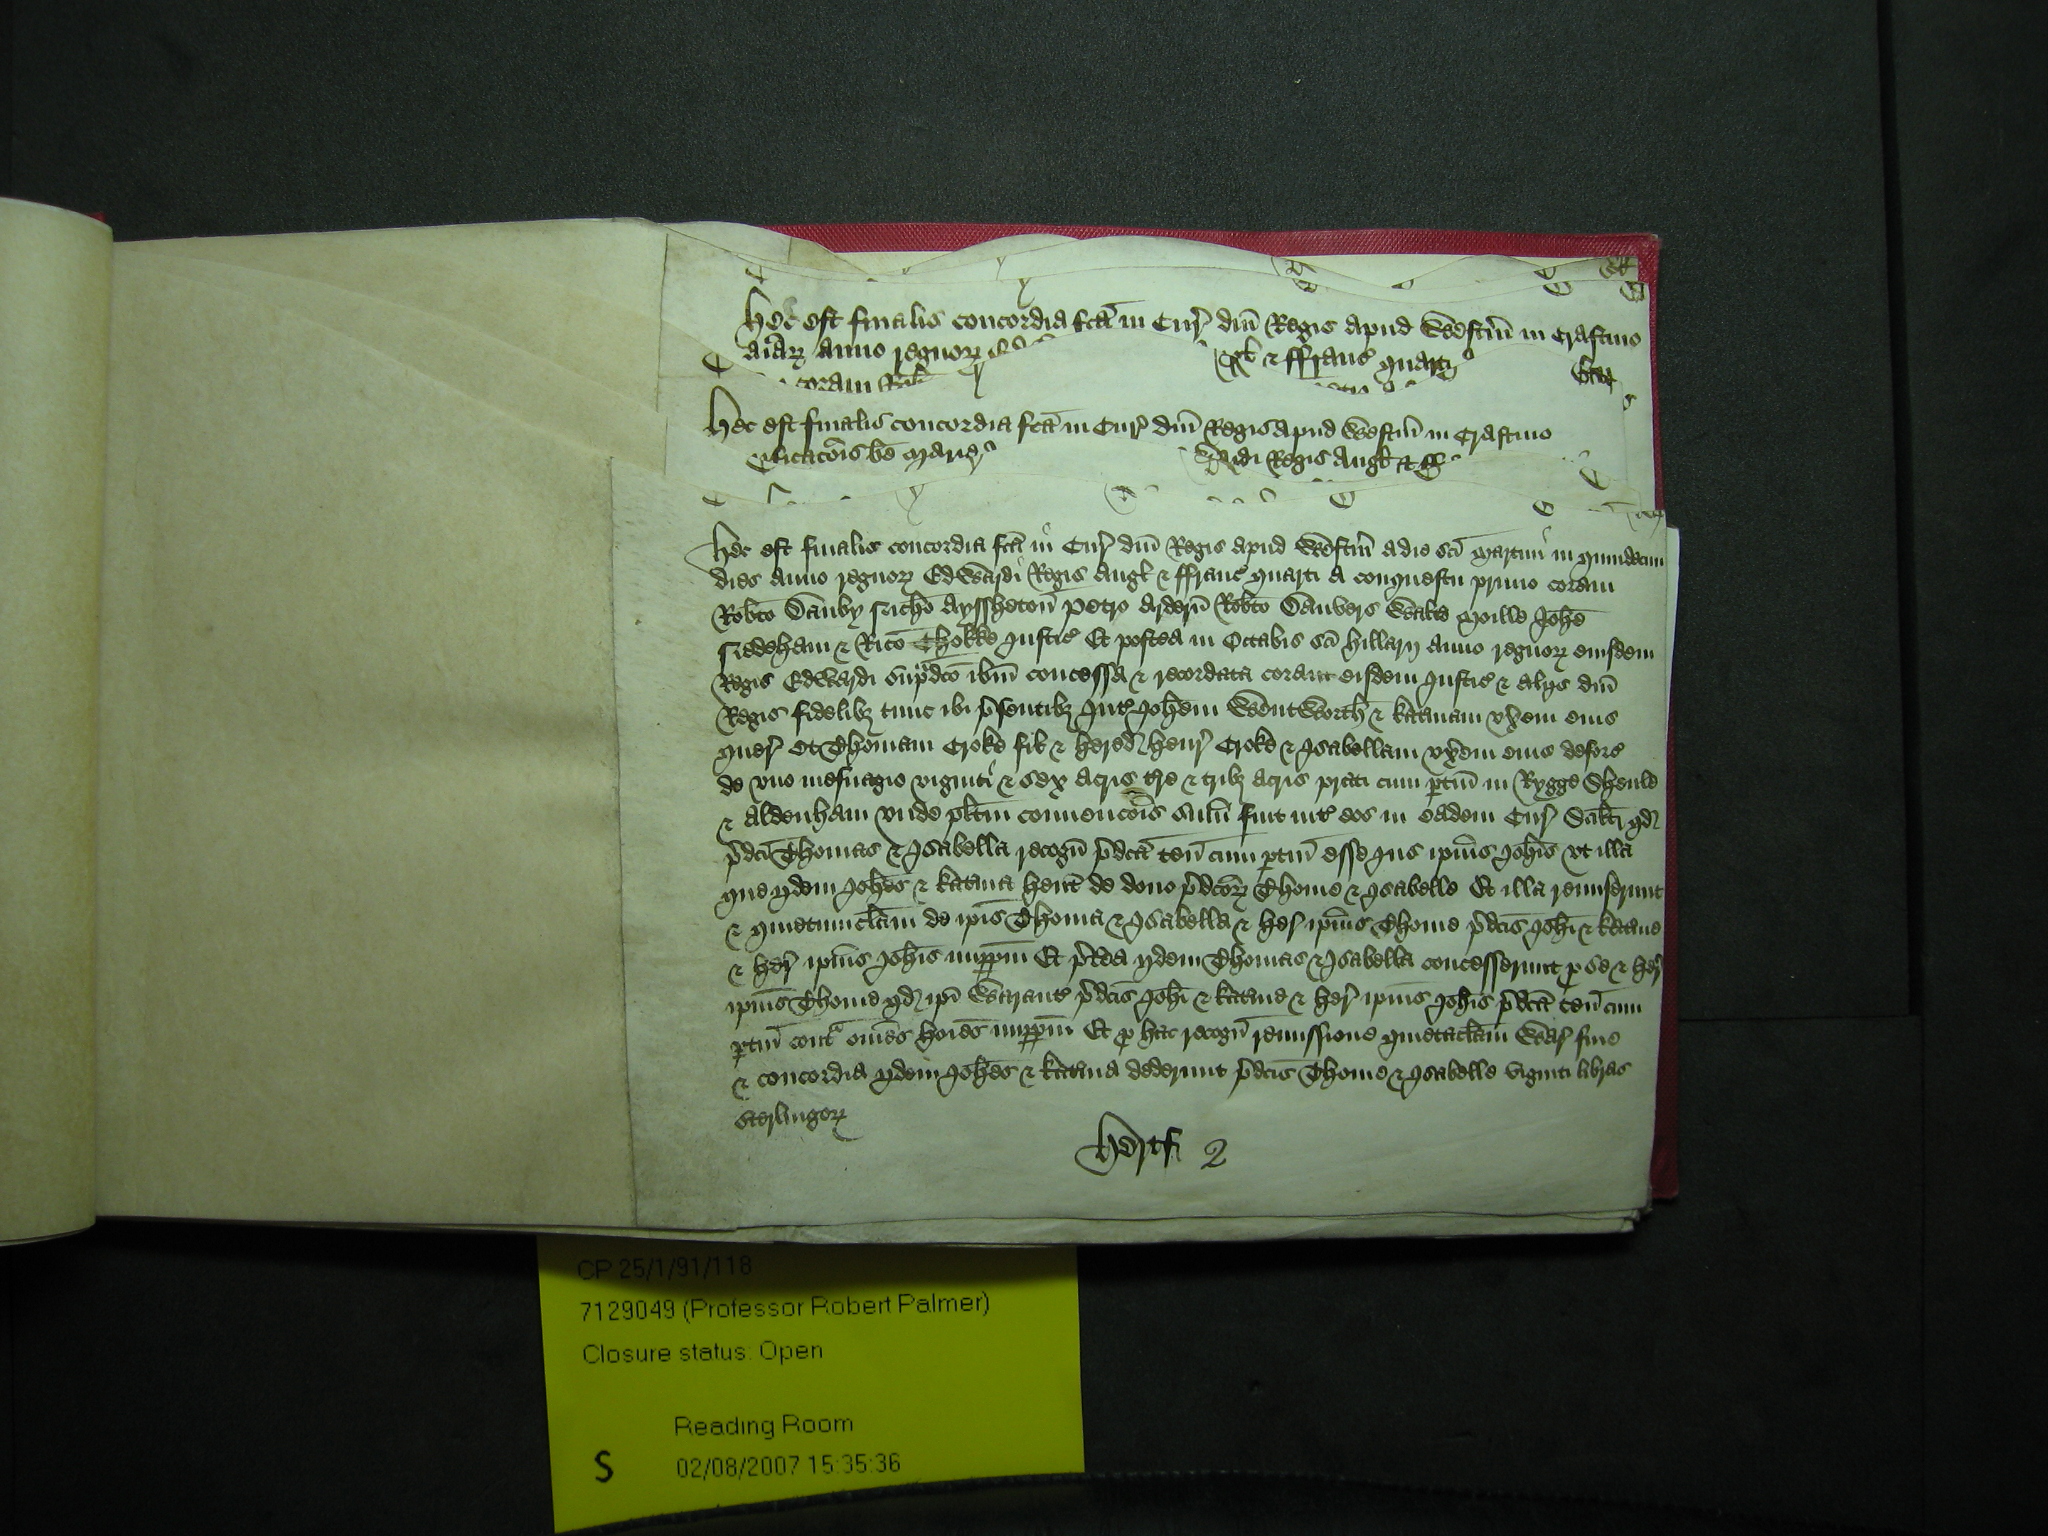 Hec est finalis concordia fcā in Cur̄ dn̄i Regis apud Westm̄ in Crastino
aīarꝫ anno regnorꝫ
Angl̄ & ffranc̄ quarti
coram Rob̄
Hec est finalis concordia fcā in Cur̄ dn̄i Regis apud Westm̄ in Crastino
Purificacōis bē Marie
Regis Angl̄ &
Hec est finalis concordia fcā in Cur̄ dn̄i Regis apud Westm̄ a die sc̄i Martini in quindecim
dies anno regnorꝫ Edwardi Regis Angl̄ & ffranc̄ quarti a conquestu primo coram
Rob̄to Danby Nich̄o Aysshetoñ Petro Arderñ Rob̄to Danvers Walt̄o Moille Joh̄e
Nedeham & Ric̄o Chokke Justic̄ Et postea in Octabis sc̄i Hillarij anno regnorꝫ eiusdem
Regis Edwardi sup̄dc̄o ib̄m concessa & recordata coram eisdem Justic̄ & alijs dn̄i
Regis fidelibꝫ tunc ibi p̄sentibꝫ Int̄ Joh̄em Wentworth & kat̄inam vx̄em eius
quer̄ et Thomam Croke fil̄ & hered̄ Henr̄ Croke & Isabellam vx̄em eius deforc̄
de vno mesuagio viginti & sex acris t̄re & tribꝫ acris prati cum p̄tiñ in Rygge Shenle
& Aldenham vnde pl̄itm conuencōis sum̄ fuit int̄ eos in eadem Cur̄ Scil̄t qd̄
p̄dc̄i Thomas & Isabella recogñ p̄dc̄a teñ cum p̄tiñ esse ius ip̄ius Joh̄is vt illa
que ijdem Joh̄es & kat̄ina hent̄ de dono p̄dc̄orꝫ Thome & Isabelle Et illa remiserunt
& quietumclam̄ de ip̄is Thoma & Isabella & her̄ ip̄ius Thome p̄dc̄is Joh̄i & kat̄ine
& her̄ ip̄ius Joh̄is imppm̄ Et p̄t̄ea ijdem Thomas & Isabella concesserunt p se & her̄
ip̄ius Thome qd̄ ip̄i Warant̄ p̄dc̄is Joh̄i & kat̄ine & her̄ ip̄ius Joh̄is p̄dc̄a teñ cum
p̄tiñ cont̄ om̄es hoīes imppm̄ Et p hac recogñ remissione quietaclam̄ War̄ fine
& concordia ijdem Joh̄es & kat̄ina dederunt p̄dc̄is Thome & Isabelle viginti libras
sterlingorꝫ
Hertf 2
CP 25/1/91/118
7129049 (Professor Robert Palmer)
Closure status: Open
Reading Room
S 02/08/2007 15:35:36